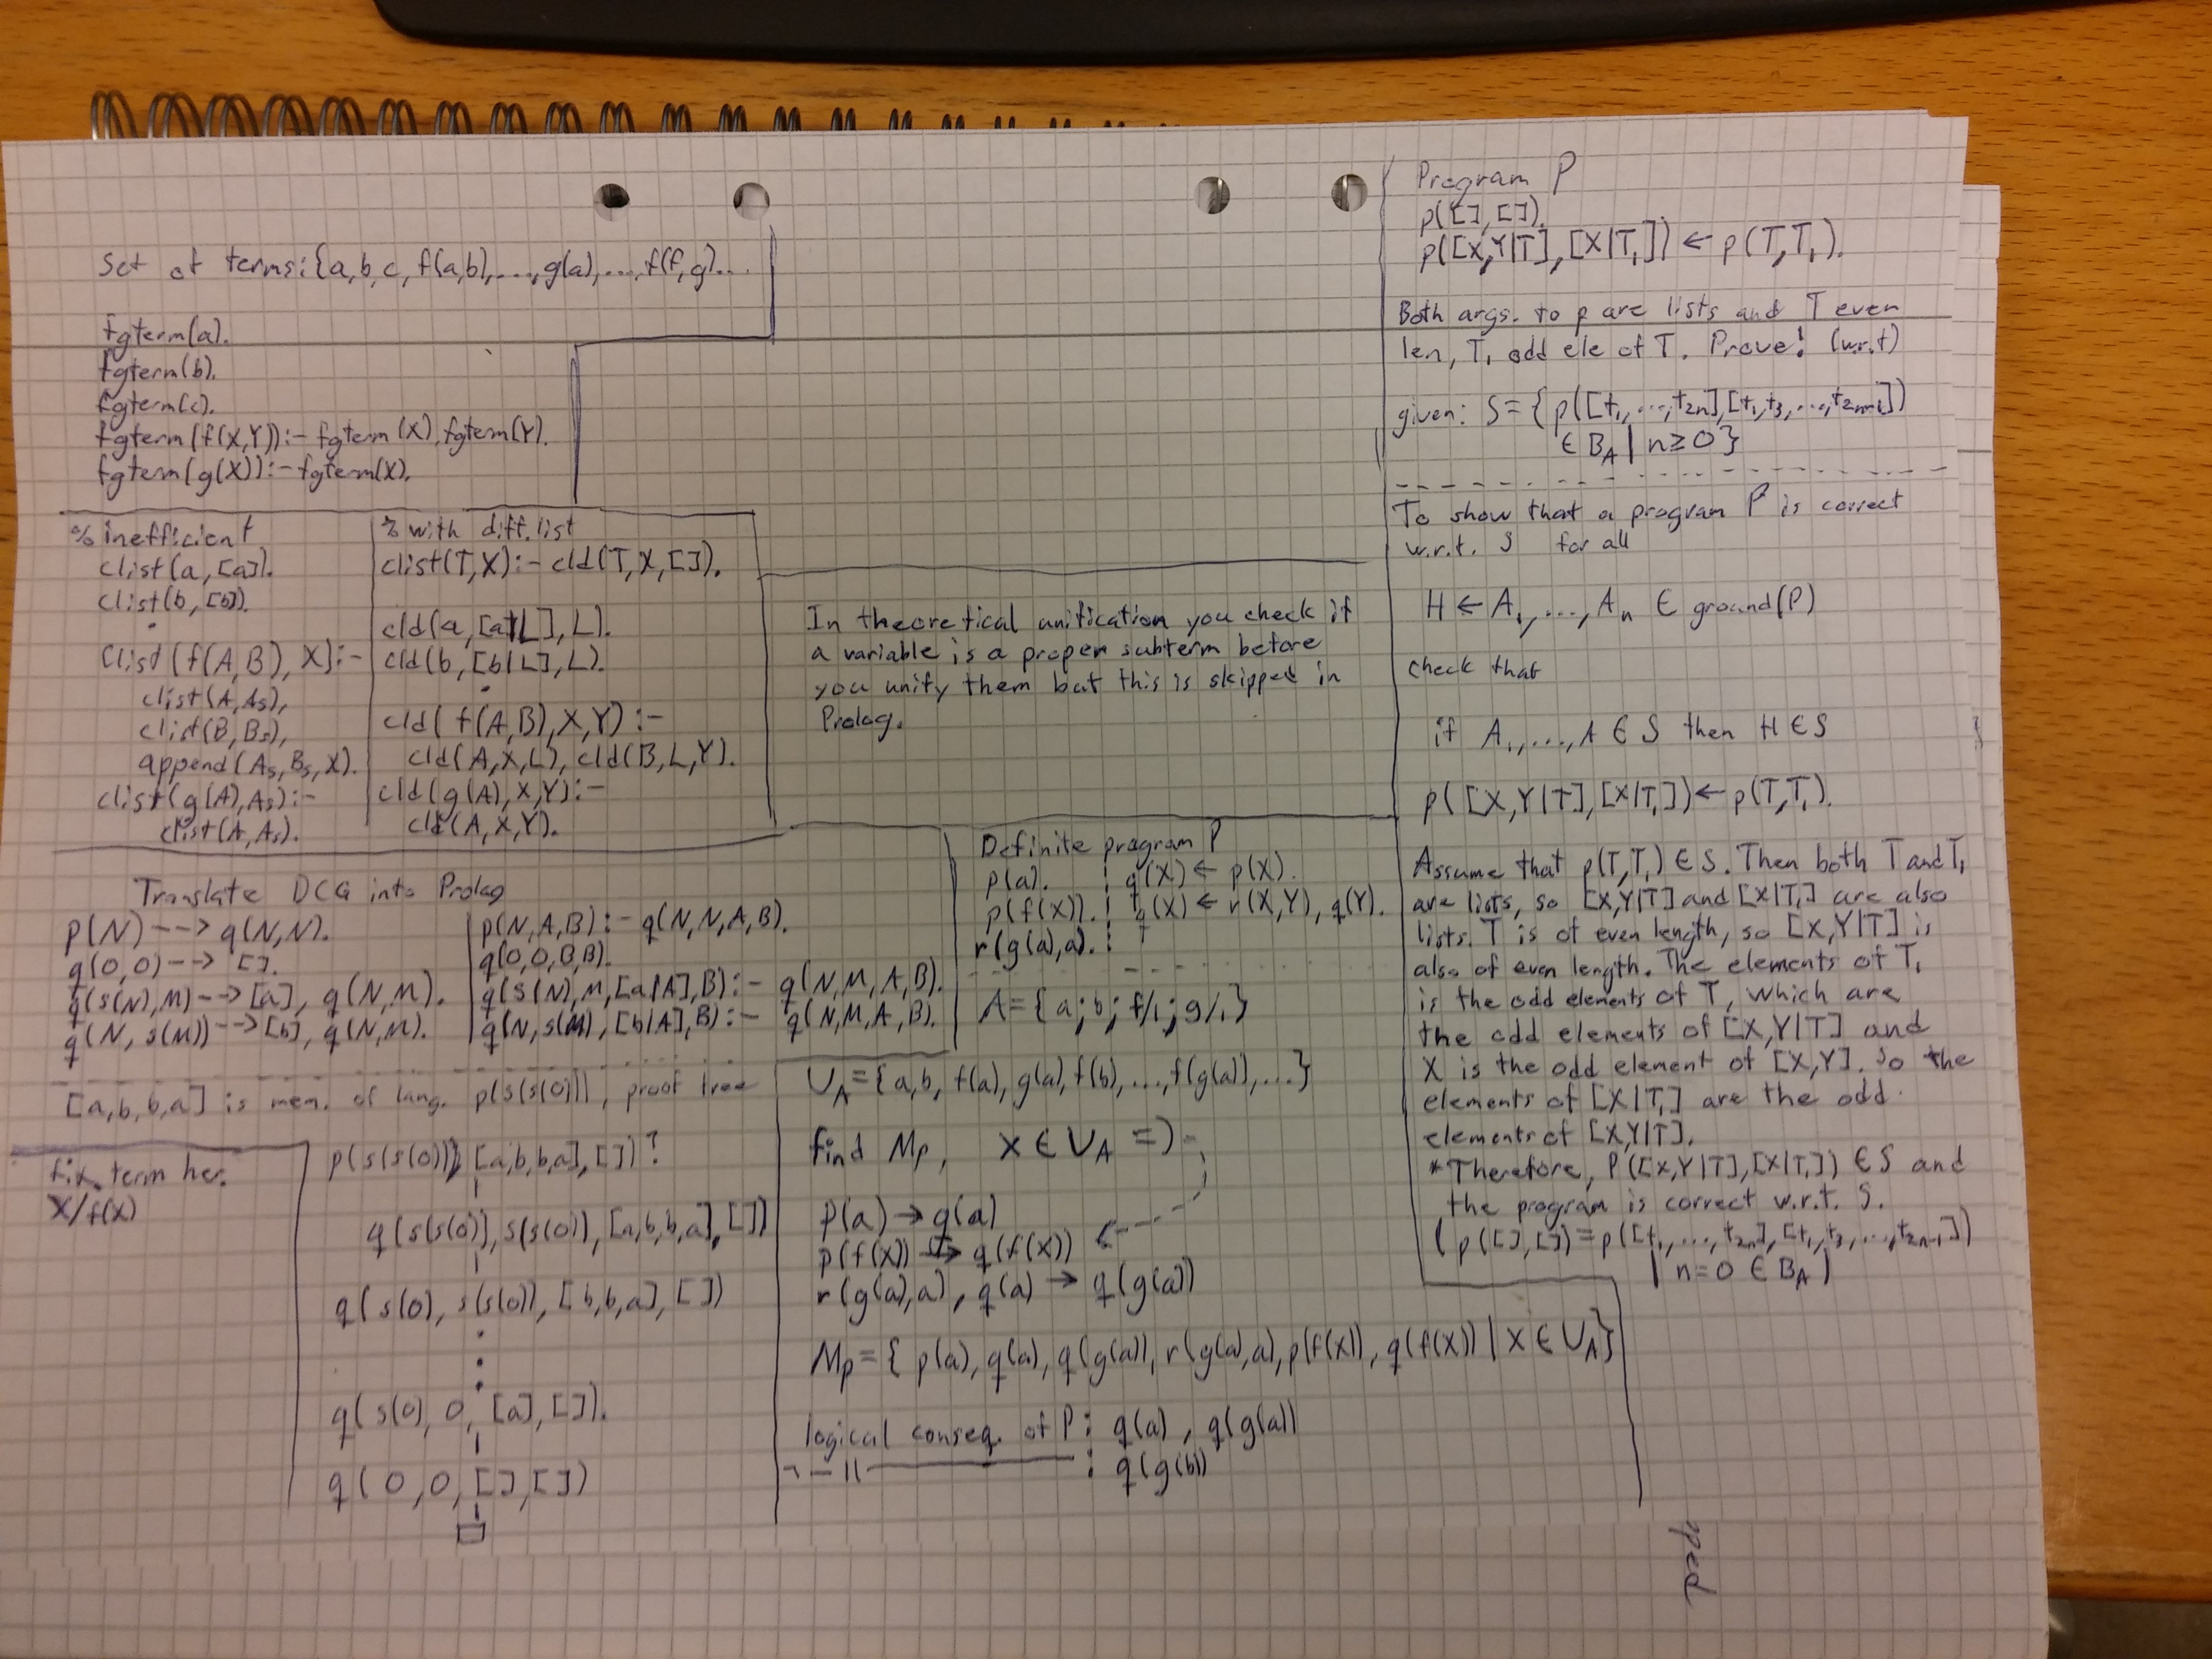 Set of terms: {a,b,c, f(a,b),...,g(a),...,f(f,g)...
fgterm(a).
fgterm(b).
fgterm(c).
fgterm(f(X,Y)):- fgterm(X),fgterm(Y).
fgterm(g(X)):- fgterm(X).
% inefficient
clist(a,[a]).
clist(b,[b]).
.
clist(f(A,B),X):-
clist(A,As),
clist(B,Bs),
append(As,Bs,X).
clist(g(A),As):-
clist(A,As).
% with diff.list
clist(T,X):- cld(T,X,[]).
cld(a,[a|L],L).
cld(b,[b|L],L).
.
cld(f(A,B),X,Y):-
cld(A,X,L), cld(B,L,Y).
cld(g(A),X,Y):-
cld(A,X,Y).
Translate DCG into Prolog
p(N) --> q(N,N).
q(0,0) --> [].
q(s(N),M) --> [a], q(N,M).
q(N, s(M)) --> [b], q(N,M).
p(N,A,B):- q(N,N,A,B).
q(0,0,B,B).
q(s(N),M,[a|A],B):- q(N,M,A,B).
q(N,s(M),[b|A],B):- q(N,M,A,B).
[a,b,b,a] is mem. of lang. p(s(s(0))), proof tree
fix term her.
X/f(X)
p(s(s(0)), [a,b,b,a],[])?
q(s(s(0)),s(s(0)),[a,b,b,a],[])
q(s(0), s(s(0)), [b,b,a], [])
q(s(0), 0, [a],[]).
q(0,0,[],[])
In theoretical unification you check if
a variable is a proper subterm before
you unify them but this is skipped in
Prolog.
Definite program P
p(a). q(X) ← p(X).
p(f(X)). q(X) ← r(X,Y), q(Y).
r(g(a),a).
A={a;b;f/1;g/1}
U_A={a,b, f(a),g(a),f(b),...,f(g(a)),...}
find Mp, X ∈ U_A =>
p(a) → q(a)
p(f(X)) → q(f(X))
r(g(a),a), q(a) → q(g(a))
Mp={p(a),q(a),q(g(a)),r(g(a),a),p(f(X)),q(f(X)) | X ∈ U_A}
logical conseq. of P: q(a), q(g(a))
¬ — ll — : q(g(b))
Program P
p([],[]).
p([X,Y|T],[X|T₁]) ← p(T,T₁).
Both args. to p are lists and T even
len, T₁ odd ele of T. Prove! (w.r.t)
given: S={p([t₁,...,t₂ₙ],[t₁,t₃,...,t₂ₙ₋₁])
∈ B_A | n≥0}
To show that a program P is correct
w.r.t. S for all
H ← A₁,...,Aₙ ∈ ground(P)
check that
if A₁,...,A ∈ S then H ∈ S
p([X,Y|T],[X|T₁]) ← p(T,T₁).
Assume that p(T,T₁) ∈ S. Then both T and T₁
are lists, so [X,Y|T] and [X|T₁] are also
lists. T is of even length, so [X,Y|T] is
also of even length. The elements of T₁
is the odd elements of T, which are
the odd elements of [X,Y|T] and
X is the odd element of [X,Y]. So the
elements of [X|T₁] are the odd
elements of [X,Y|T].
*Therefore, P([X,Y|T],[X|T₁]) ∈ S and
the program is correct w.r.t. S.
(p([],[])=p([t₁,...,t₂ₙ],[t₁,t₃,...,t₂ₙ₋₁])
| n=0 ∈ B_A)
ped